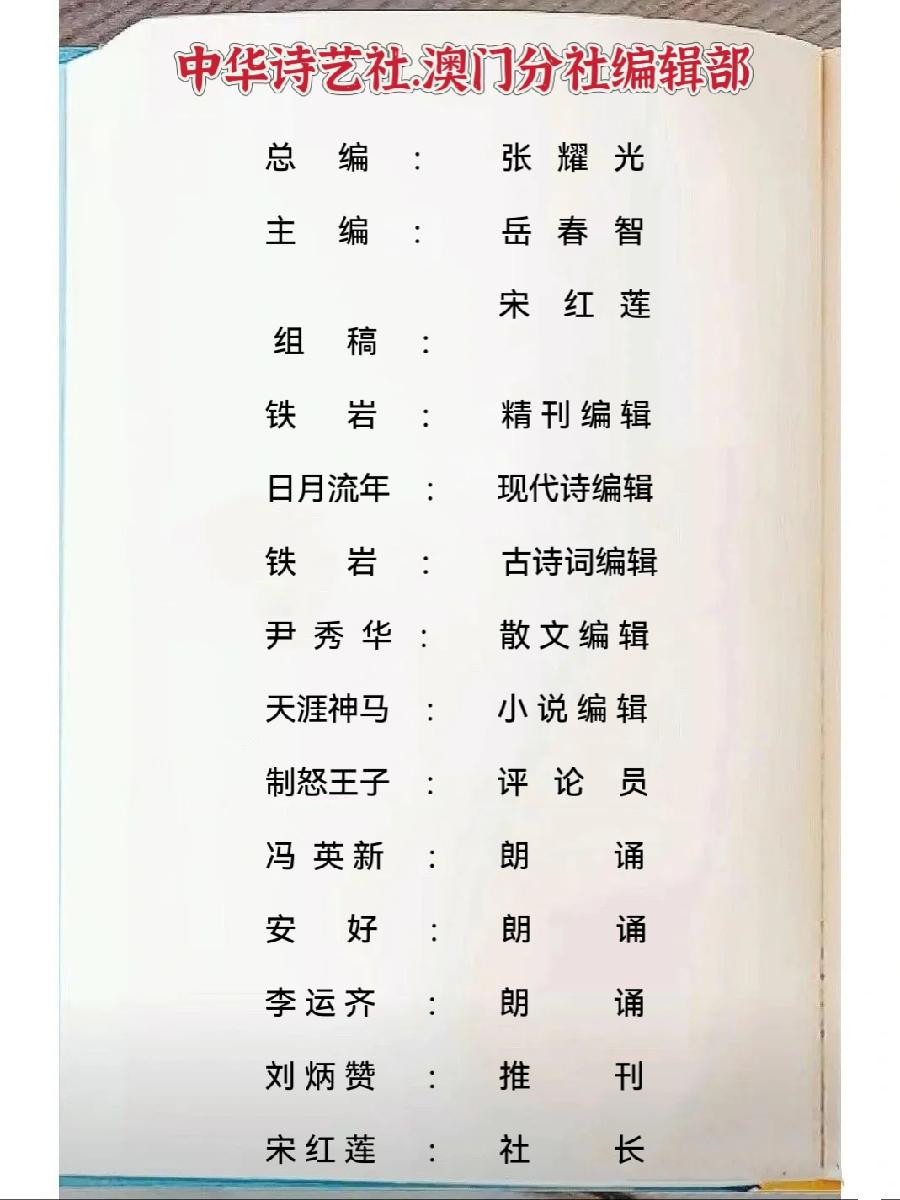 中华诗艺社.澳门分社编辑部
总编：张耀光
主编：岳春智
宋红莲
组稿：
铁岩：精刊编辑
日月流年：现代诗编辑
铁岩：古诗词编辑
尹秀华：散文编辑
天涯神马：小说编辑
制怒王子：评论员
冯英新：朗诵
安好：朗诵
李运齐：朗诵
刘炳赞：推刊
宋红莲：社长